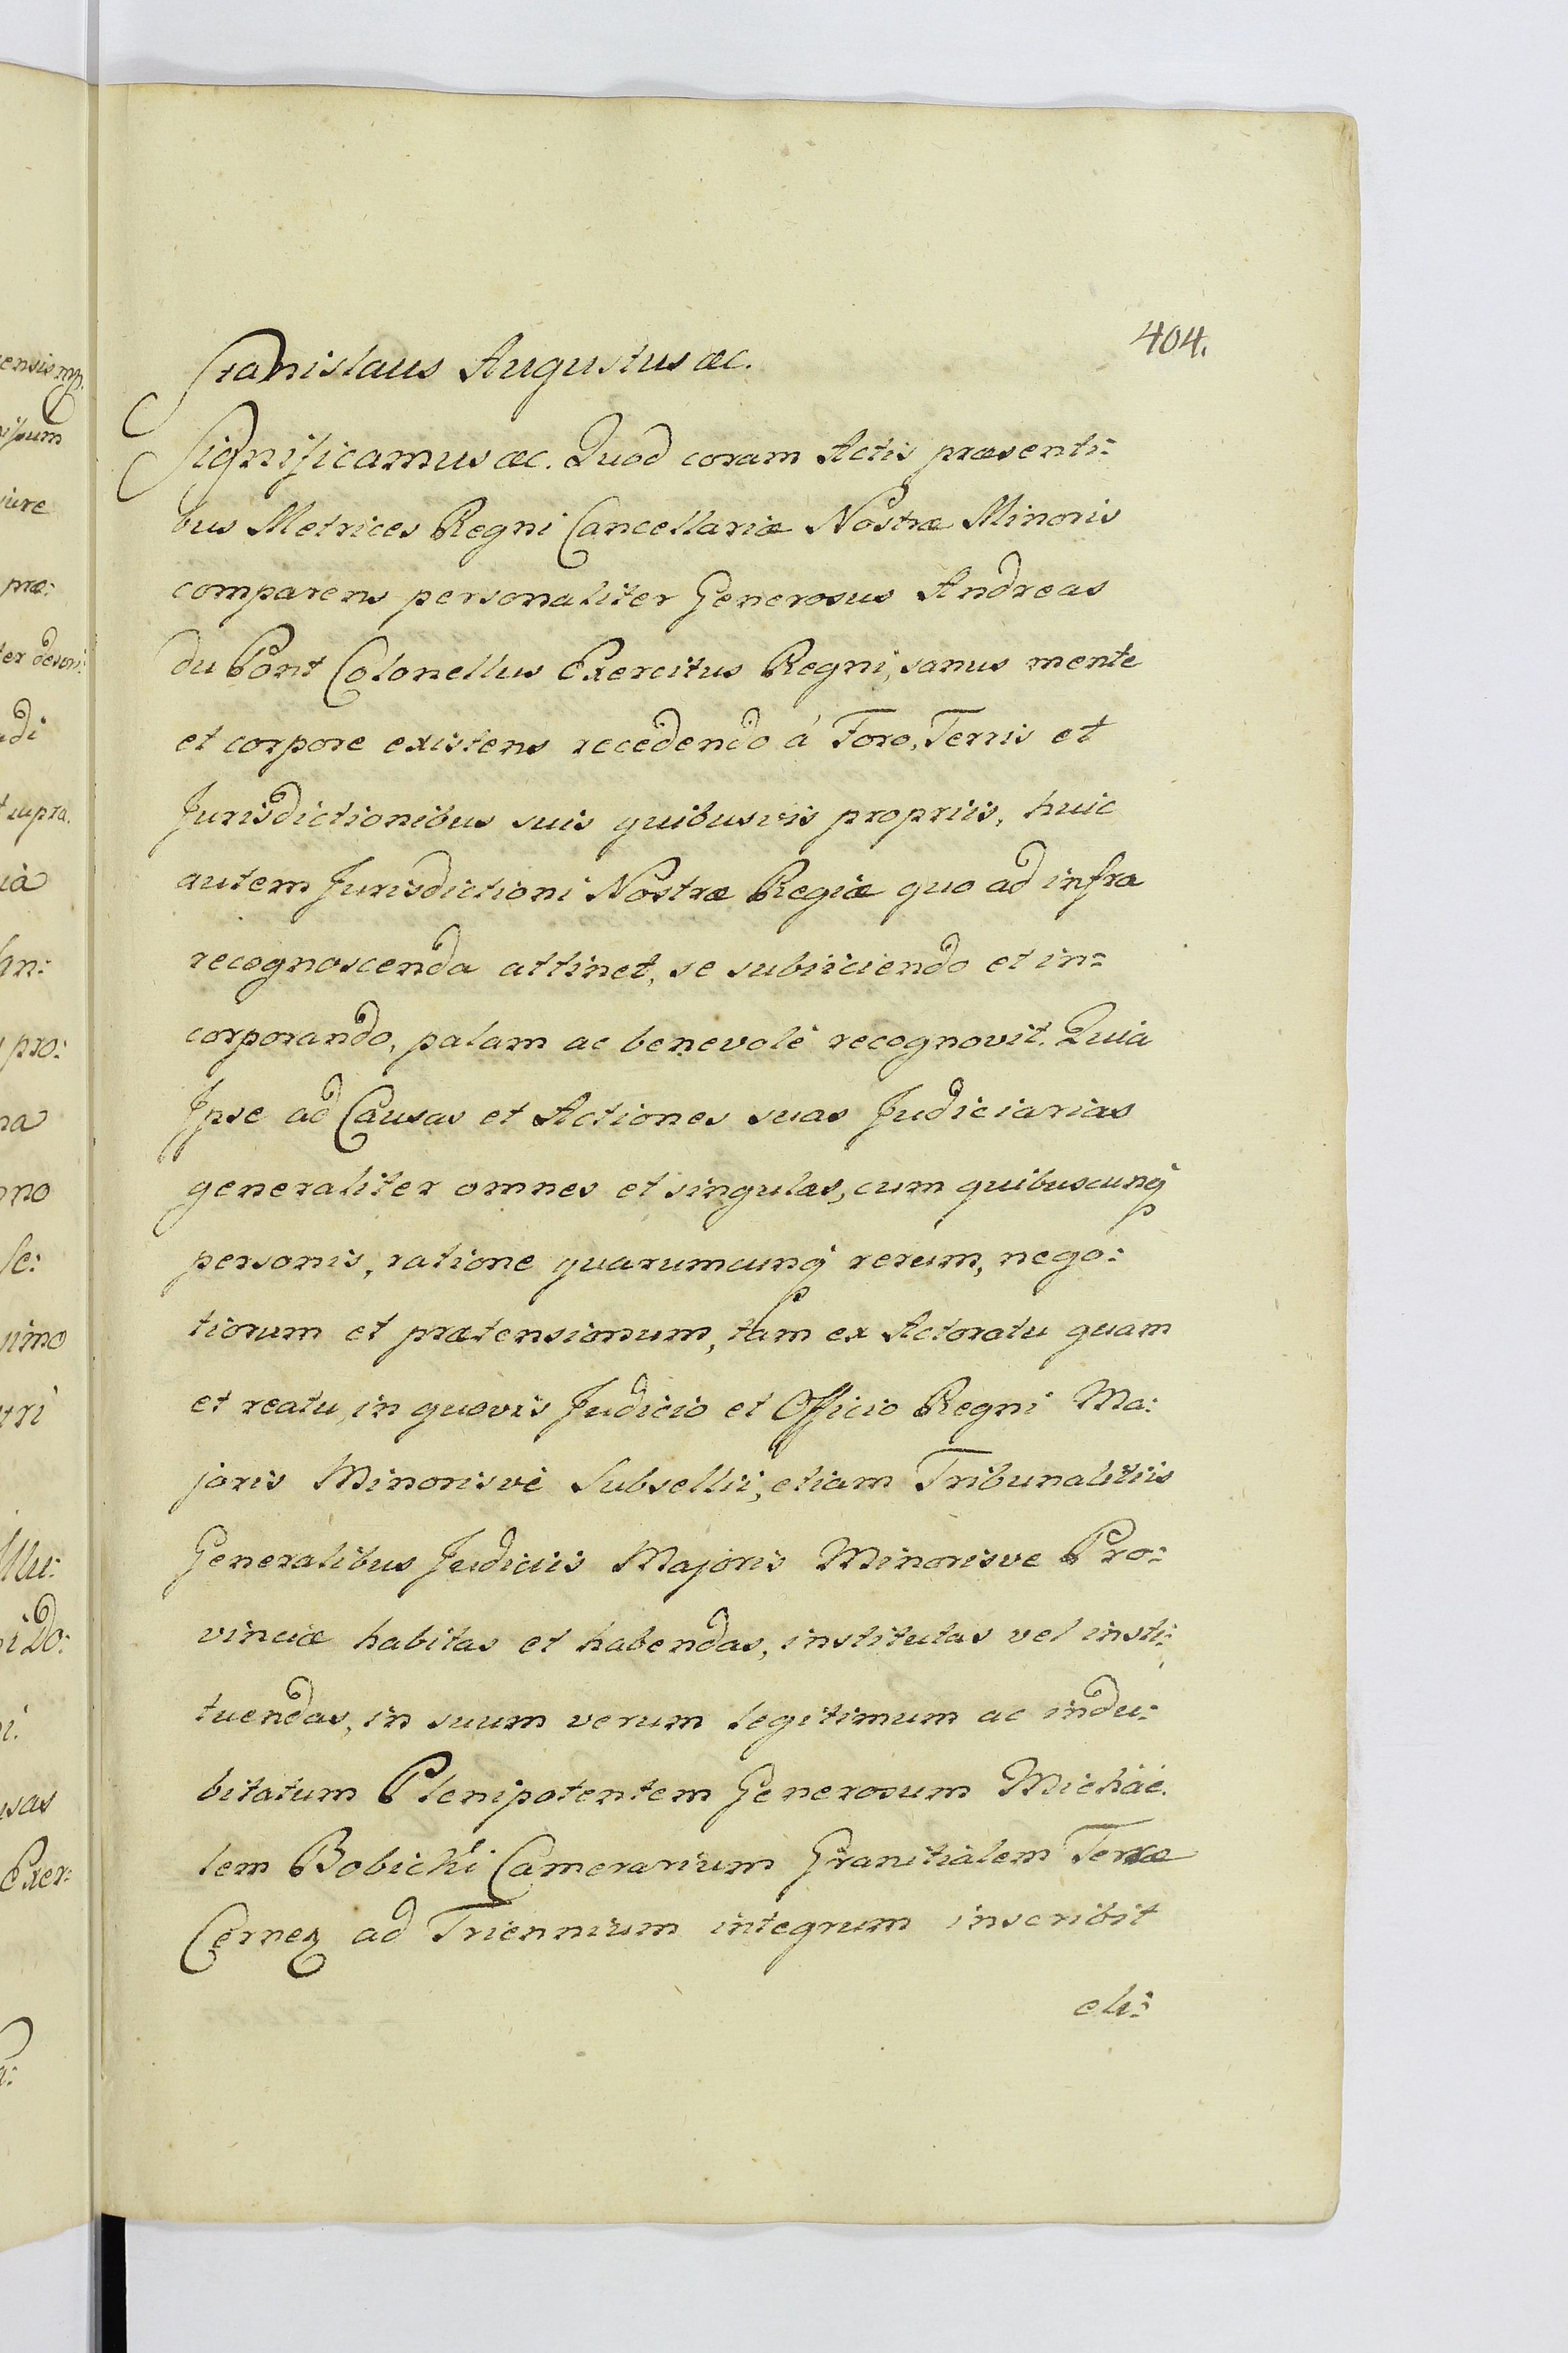 404.
Stanislaus Augustus &c.
Significamus &c. Quod coram Actis præsenti=
bus Metrices Regni Cancellariæ Nostræ Minoris
comparens personaliter Generosus Andreas
du Pont Colonellus Exercitus Regni, sanus mente
et corpore existens recedendo á Foro, Terris et
Jurisdictionibus suis quibusvis propriis, huic
autem Jurisdictioni Nostræ Regiæ quo ad infra
recognoscenda attinet, se subiiciendo et in=
corporando, palam ac benevolè recognovit. Quia
Ipse ad Causas et Actiones suas Judiciarias
generaliter omnes et singulas, cum quibuscunq
personis, ratione quarumcunq rerum, nego:
tiorum et prætensionum, tam ex Actoratu quam
et reatu, in quovis Judicio et Officio Regni Ma:
joris Minorisvè Subsellii, etiam Tribunalitiis
Generalibus Judiciis Majoris Minorisve Pro:
vinciæ habitas et habendas, institutas vel insti:
tuendas, in suum verum legitimum ac indu:
bitatum Plenipotentem Generosum Michaé.
lem Bobicki Camerarium Granitialem Terræ
Cernez ad Triennium integrum inscribit
eli:
ensis mp.
ure
præ:
adi
supra.
pro:
imo
tri
Exer: